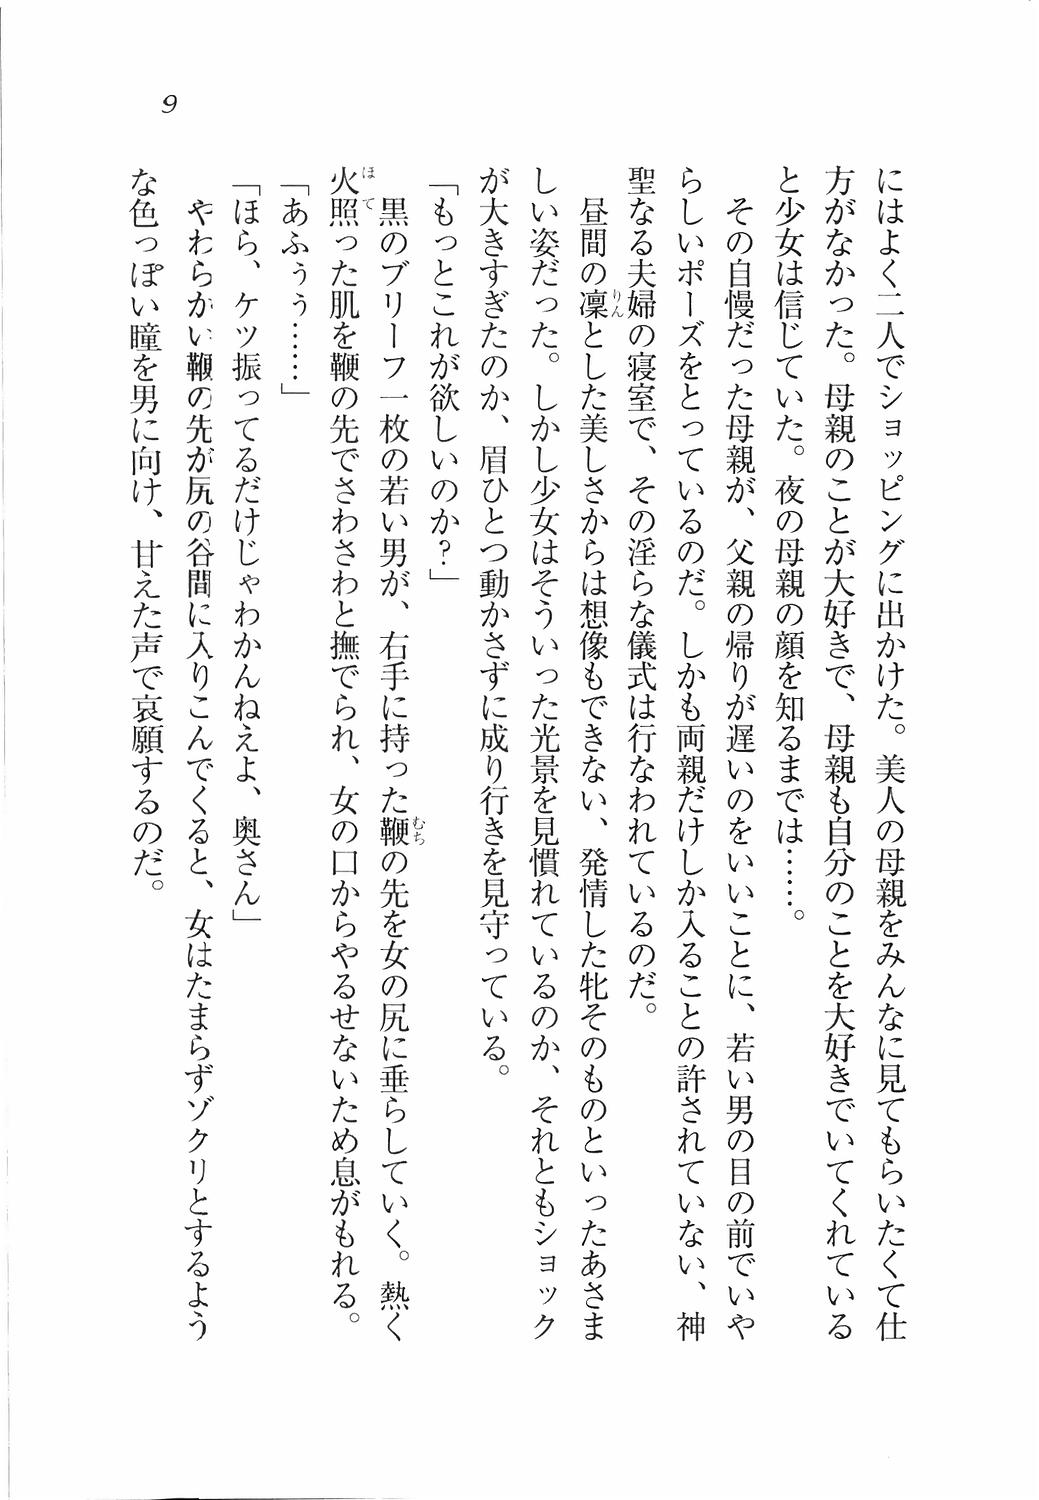 9
にはよく二人でショッピングに出かけた。美人の母親をみんなに見てもらいたくて仕
方がなかった。母親のことが大好きで、母親も自分のことを大好きでいてくれている
と少女は信じていた。夜の母親の顔を知るまでは……。
その自慢だった母親が、父親の帰りが遅いのをいいことに、若い男の目の前でいや
らしいポーズをとっているのだ。しかも両親だけしか入ることの許されていない、神
聖なる夫婦の寝室で、その淫らな儀式は行なわれているのだ。
りん
昼間の凜とした美しさからは想像もできない、発情した牝そのものといったあさま
しい姿だった。しかし少女はそういった光景を見慣れているのか、それともショック
が大きすぎたのか、眉ひとつ動かさずに成り行きを見守っている。
「もっとこれが欲しいのか？」
むち
黒のブリーフ一枚の若い男が、右手に持った鞭の先を女の尻に垂らしていく。熱く
ほて
火照った肌を鞭の先でさわさわと撫でられ、女の口からやるせないため息がもれる。
「あふぅぅ……」
「ほら、ケツ振ってるだけじゃわかんねえよ、奥さん」
やわらかい鞭の先が尻の谷間に入りこんでくると、女はたまらずゾクリとするよう
な色っぽい瞳を男に向け、甘えた声で哀願するのだ。